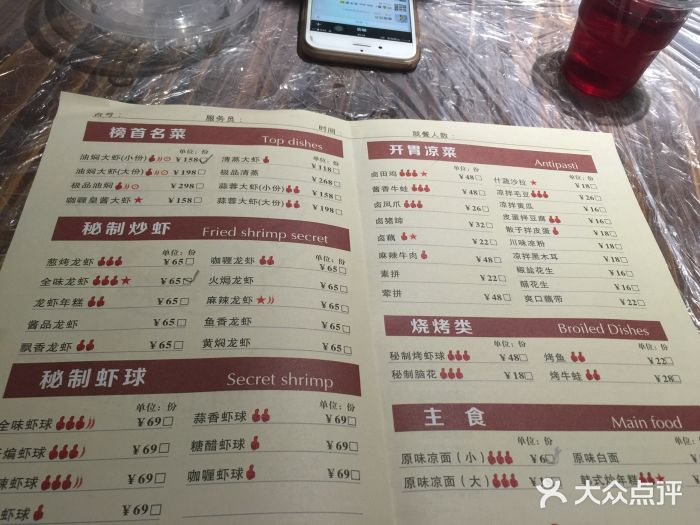 服务员:
时间
就餐人数:
榜首名菜 Top dishes
单位:份 单位:份
油焖大虾(小份) ¥158 清蒸大虾 ¥118
油焖大虾(大份) ¥198 极品清蒸 ¥268
极品油焖 ¥298 蒜蓉大虾(小份) ¥158
咖喱皇酱大虾 ¥158 蒜蓉大虾(大份) ¥198
秘制炒虾 Fried shrimp secret
单位:份 单位:份
葱烤龙虾 ¥65 咖喱龙虾 ¥65
全味龙虾 ¥65 火焗龙虾 ¥65
龙虾年糕 ¥65 麻辣龙虾 ¥65
酱品龙虾 ¥65 鱼香龙虾 ¥65
飘香龙虾 ¥65 黄焖龙虾 ¥65
秘制虾球 Secret shrimp
单位:份 单位:份
全味虾球 ¥69 蒜香虾球 ¥69
虾球 ¥69 糖醋虾球 ¥69
辣虾球 ¥69 咖喱虾球 ¥69
虾球 ¥69
开胃凉菜 Antipasti
单位:份 单位:份
卤田鸡 ¥48 什蔬沙拉 ¥18
酱香牛蛙 ¥48 凉拌毛豆 ¥16
卤凤爪 ¥26 凉拌黄瓜 ¥16
卤猪蹄 ¥32 皮蛋拌豆腐 ¥16
卤藕 ¥22 馓子拌皮蛋 ¥18
麻辣牛肉 ¥48 川味凉粉 ¥18
素拼 ¥22 凉拌黑木耳 ¥18
荤拼 ¥48 椒盐花生 ¥18
醋花生 ¥16
爽口藕带 ¥22
烧烤类 Broiled Dishes
单位:份 单位:份
秘制烤虾球 ¥48 烤鱼 ¥22
秘制脑花 ¥18 烤牛蛙 ¥28
主食 Main food
单位:份 单位:份
原味凉面(小) ¥6 原味白面
原味凉面(大) 韩式炒年糕
大众点评